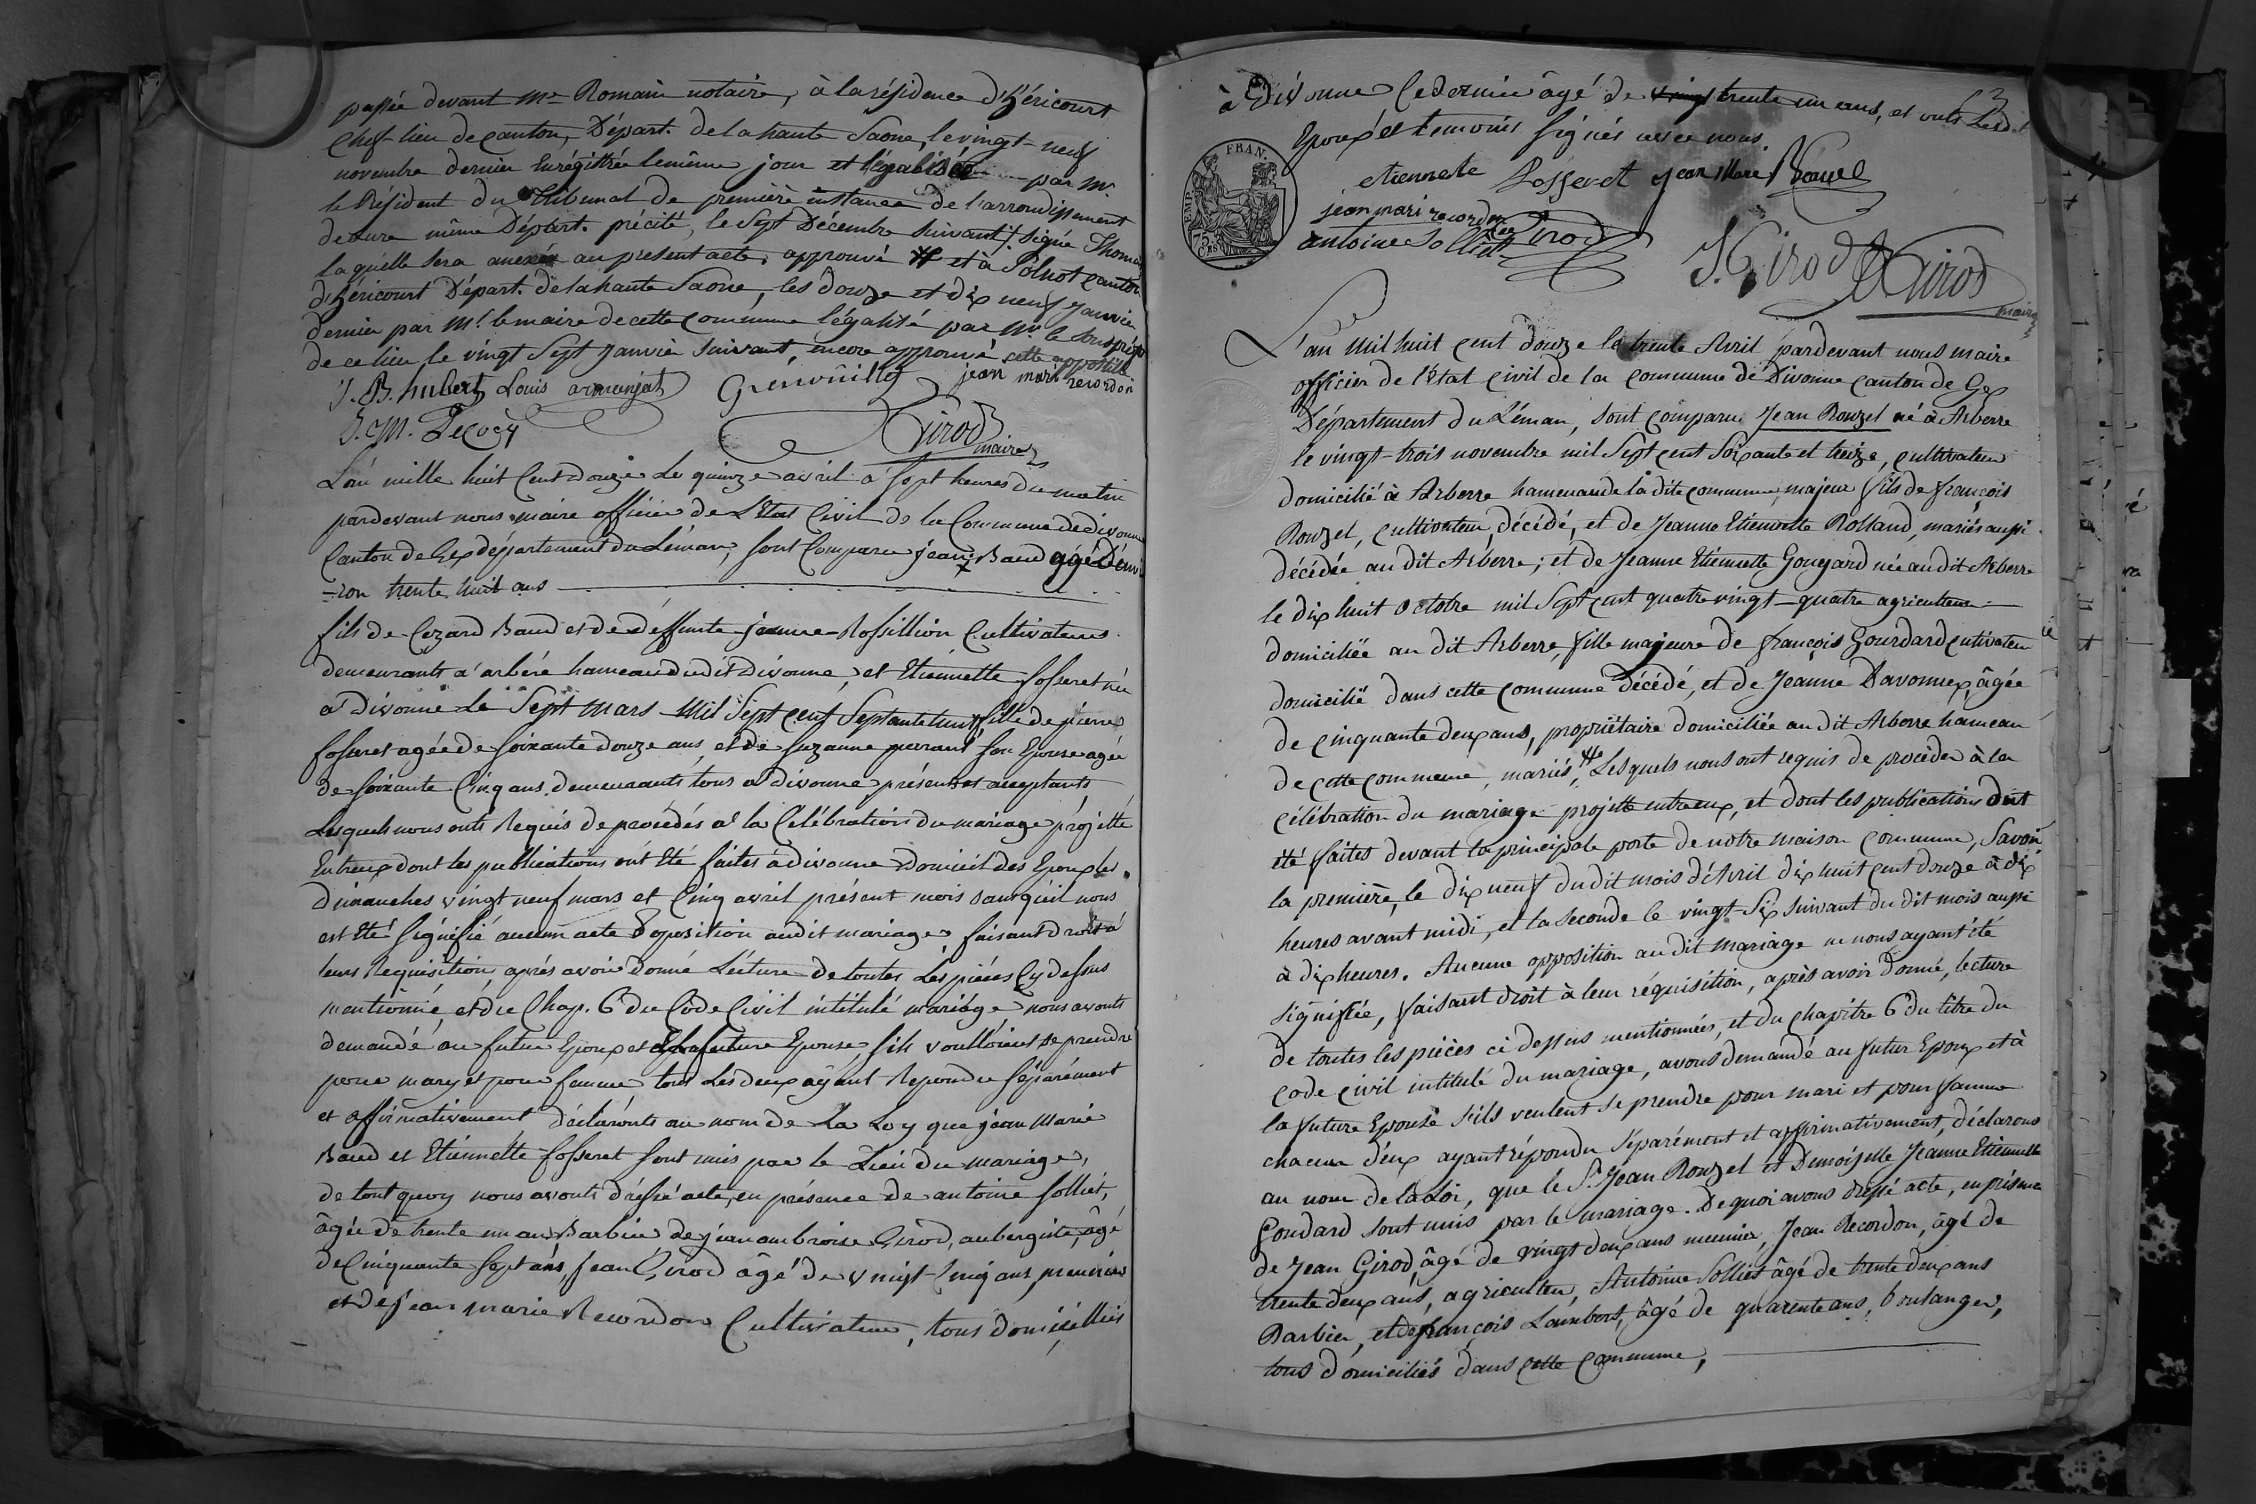 passée devant Me Romain notaire, à la résidence d'héricourt
Chef-lieu de canton, Départ. de la haute Saone, le vingt-neuf
novembre dernier Enrégistrée le même jour et légalisée par Mr.
le Président du Tribunal de première instance de l'arrondissement
de Lure même Départ. précité, le Sept Décembre suivant signée Thomas
laquelle sera anexée au present acte. approuvé et à Polnot canton
d'héricourt Départ. de la haute Saone, les douze et dix neuf Janvier
dernier par Mr. le maire de cette commune légalisé par Mr. le Souspréfet
de ce lieu le vingt Sept Janvier suivant, encore approuvé cette appostille
J. B. humbert Louis armanjat Grenouillet jean mari recordon
J. M. Decroy Girod
maire
L'an mille huit Cent douze Le quinze avril à sept heures du matin
pardevant nous maire officier de L'Etat Civil de la Commune de divonne
Canton de Gex département du Léman, sont Comparu jean Baud agé D'envi
-ron trente huit ans
fils de Cezard Baud et de deffunte jeanne Rossillion Cultivateurs
demeurants a arbére hameau du dit divonne, et Etiennette fosseret née
a Divonne Le Sept mars Mil Sept cent Septante huit, fille de pierre
fosseret agée de soixante douze ans, et de Suzanne parant son Epouse agée
de soixante Cinq ans demeurants tous a divonne présents et acceptants
Lesquels nous onts Requis de procédés a la Célébration du mariage projetté
Entreux dont les publications ont Eté faites à divonne Domicil des Epoux les
dimanches vingt neuf mars et Cinq avril présent mois sans qu'il nous
est Eté signifié aucun acte d'oposition audit mariage faisant Droit à
leurs Requisition, aprés avoir donné Lecture de toutes Les piéces Cy dessus
mentionné, et du Chap. 6 du Code Civil intitulé mariage nous avonts
demandé au futur Epoux et a la future Epouse, sils voulloient se prendre
pour mary et pour femme tous Les deux ayant Repondu séparément
et affirmativement déclaronts au nom de La Loy que jean Marie
Baud et Etiennette fosseret sont unis par le Lien du mariage,
de tout quoy nous avonts dréssé acte, en présence de antoine solliet,
âgée de trente un ans Barbier de jean ambroise Girod, aubergiste, âgé
de Cinquante Sept ans, Jean Girod âgé de vingt-Cinq ans, meunier
et de jean marie Recordon Cultivateur, tous domicilliés
à Divonne Ce dernier âgé de vingt trente un ans, et onts Lesd.
Epoux et temoins signés avec nous
63
FRAN.
TEMP.
75
CES
etiennete fosseret jean Marie Baud
jean mari recordon
antoine Solliet Girod
J. Girod Girod
maire
L'an Mil huit cent douze le trente Avril pardevant nous maire
officier de l'état civil de la commune de Divonne canton de Gex
Département du Léman, sont comparu Jean Rouzel né à Arberre
le vingt-trois novembre mil Sept cent Soixante et treize, cultivateur
domicilié à Arberre hameau de la dite commune, majeur fils de françois
Rouzel, cultivateur, décédé, et de Jeanne Etiennette Rolland, mariés aussi
décédée au dit Arberre; et de Jeanne Etiennette Gougard née au dit Arberre
le dix huit octobre mil Sept cent quatre vingt-quatre agriculteur
domiciliée au dit Arberre, fille majeure de françois Gourdard cultivateur
domicilié dans cette commune décédé, et de Jeanne Davonnex, âgée
de cinquante deux ans, propriétaire domiciliée au dit Arberre hameau
de cette commune, mariés, Lesquels nous ont requis de procéder à la
célébration du mariage projetté entr'eux, et dont les publications ont
été faites devant la principale porte de notre maison commune, Savoir
la première, le dix neuf du dit mois d'Avril dix huit cent douze à dix
heures avant midi, et la seconde le vingt Six suivant du dit mois aussi
à dix heures. Aucune opposition au dit mariage ne nous ayant été
signifiée, faisant droit à leur réquisition, après avoir donné, lecture
de toutes les pièces ci dessus mentionnées, et du chapitre 6 du titre du
code civil intitulé du mariage, avons demandé au futur Epoux et à
la future Epouse s'ils veulent se prendre pour mari et pour femme
chacun d'eux ayant répondu séparément et affirmativement, déclarons
au nom de la Loi, que le Sr. Jean Rouzel et Demoiselle Jeanne Etiennette
Goudard sont unis par le mariage. De quoi avons dressé acte, en présence
de Jean Girod, âgé de vingt deux ans meunier, Jean Recordon, âgé de
trente deux ans, agriculteur, Antoine Solliet âgé de trente deux ans
Barbier, et de françois Lambert, âgé de quarente ans, boulanger,
tous domiciliés dans cette commune,